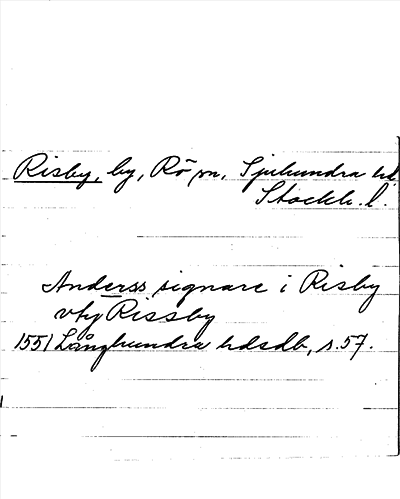 Risby, by, Rö sn, Sjuhundra hd,
Stockh. l.
Anderss signare i Risby
vty Rissby
1551 Långhundra hdsdb, s. 57.